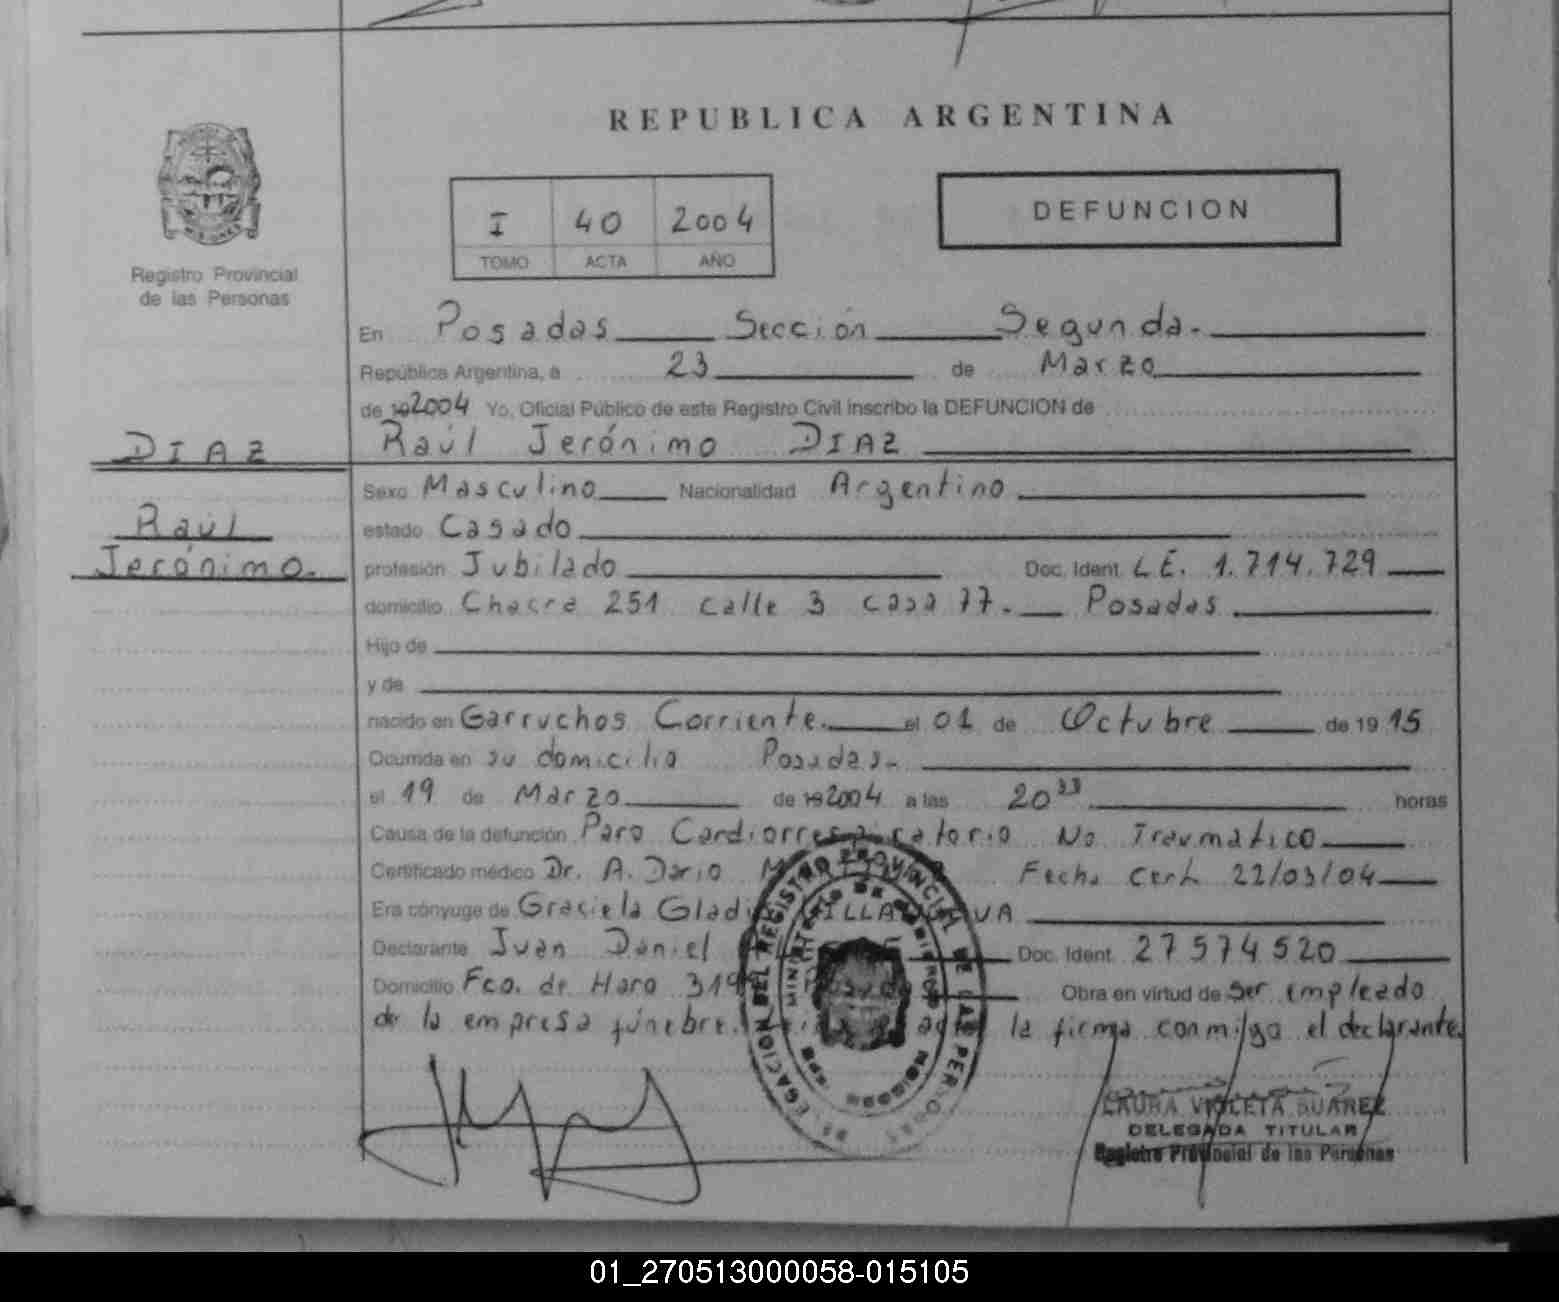 REPUBLICA ARGENTINA
Registro Provincial
de las Personas
I 40 2004
TOMO ACTA AÑO
DEFUNCION
En Posadas Sección Segunda.
República Argentina, a 23 de Marzo
de 192004 Yo, Oficial Público de este Registro Civil inscribo la DEFUNCION de
DIAZ
Raúl Jerónimo DIAZ
Raúl
Jerónimo.
Sexo Masculino Nacionalidad Argentino
estado Casado
profesión Jubilado Doc. Ident. L.E. 1.714.729
domicilio Chacra 251 calle 3 casa 77. Posadas.
Hijo de
y de
nacido en Garruchos Corriente. el 01 de Octubre de 19 15
Ocurrida en su domicilio Posadas.
el 19 de Marzo de 192004 a las 20 horas
Causa de la defunción Paro Cardiorrespiratorio No Traumático
Certificado médico Dr. A. Dario Fecha Cert. 22/03/04
Era cónyuge de Graciela
Declarante Juan Daniel Doc. Ident. 27574520
Domicilio Fco. de Haro Obra en virtud de ser empleado
de la empresa fúnebre. la firma conmigo el declarante.
DELEGACION DEL REGISTRO PROVINCIAL DE LAS PERSONAS
LAURA VIOLETA SUAREZ
DELEGADA TITULAR
Registro Provincial de las Personas
01_270513000058-015105